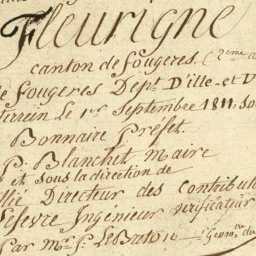 Fleurigné
canton de fougeres. (2ème a
e fougeres Dept. D'ille-et-V
Terrein Le 1er Septembre 1811, so
Bonnaire Préfet.
P. Blanchet Maire
et sous la direction de
Directeur des Contribut
Lefevre Ingenieur verificateur
Par Mr. f. LeBato